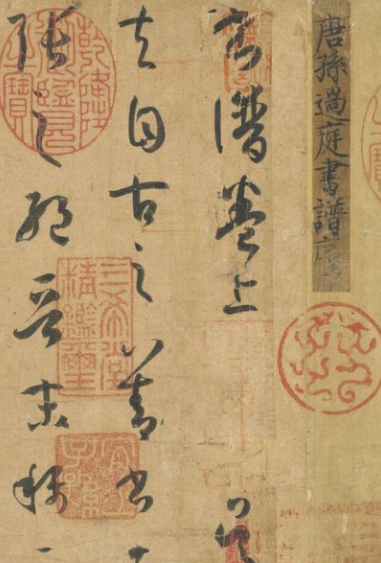 唐孫過庭書譜序
書譜卷上
吳
夫自古之善書
張之絕晉末稱
乾隆御覽之寶
三希堂精鑑璽
宜子孫